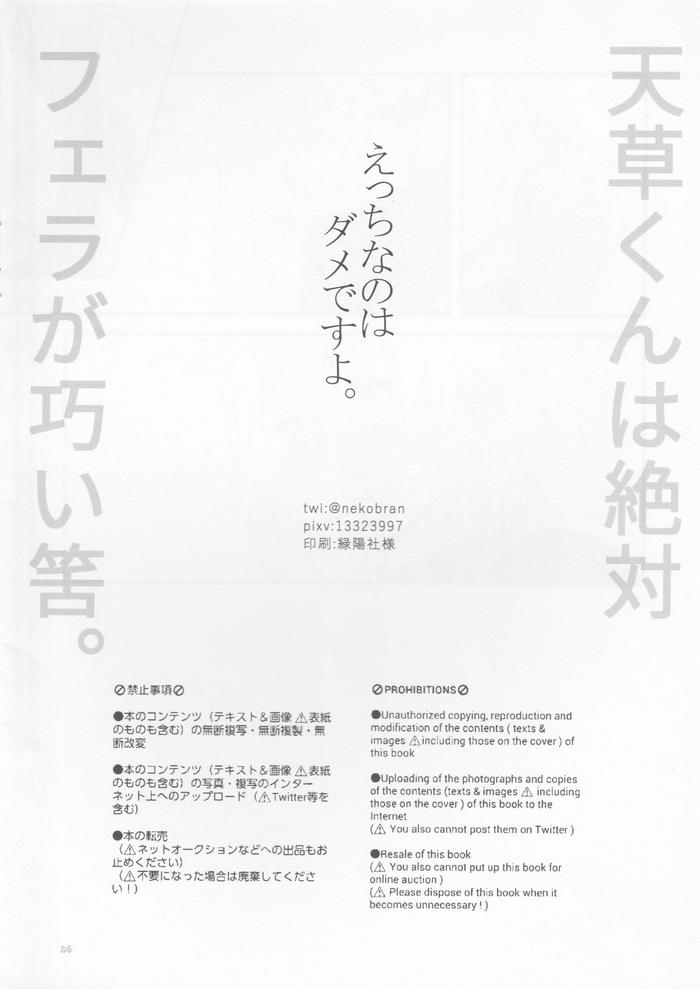 天草くんは絶対
フェラが巧い筈。
えっちなのは
ダメですよ。
twi:@nekobran
pixv:13323997
印刷:緑陽社様
禁止事項
●本のコンテンツ（テキスト＆画像 ⚠表紙
のものも含む）の無断複写・無断複製・無
断改変
●本のコンテンツ（テキスト＆画像 ⚠表紙
のものも含む）の写真・複写のインター
ネット上へのアップロード（⚠Twitter等を
含む）
●本の転売
（⚠ネットオークションなどへの出品もお
止めください）
（⚠不要になった場合は廃棄してくださ
い！）
PROHIBITIONS
●Unauthorized copying, reproduction and
modification of the contents ( texts &
images ⚠including those on the cover ) of
this book
●Uploading of the photographs and copies
of the contents (texts & images ⚠ including
those on the cover ) of this book to the
Internet
(⚠ You also cannot post them on Twitter )
●Resale of this book
(⚠ You also cannot put up this book for
online auction )
(⚠ Please dispose of this book when it
becomes unnecessary ! )
14